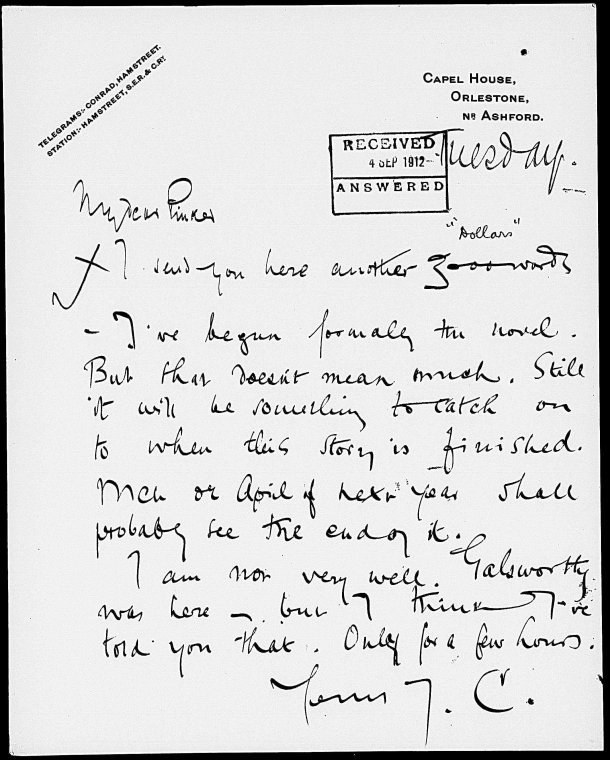 TELEGRAMS:- CONRAD, HAMSTREET.
STATION:- HAMSTREET, S.E.R. & C.RY.
CAPEL HOUSE,
ORLESTONE,
NR ASHFORD.
RECEIVED
4 SEP 1912
ANSWERED
Tuesday.
My dear Pinker
"Dollars"
I send you here another 3000 words
- I've begun formally the novel.
But that doesn't mean much. Still
it will be something to catch on
to when this story is finished.
Mch or April of next year shall
probably see the end of it.
I am not very well. Galsworthy
was here - but I think I've
told you that. Only for a few hours.
Yours J. C.